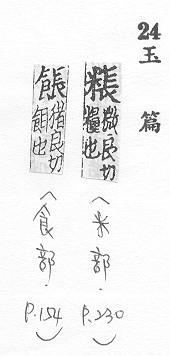 24 玉篇
粻 徵良切
糧也
(米部. P.230)
餦 猪良切
也
(食部. P.154)